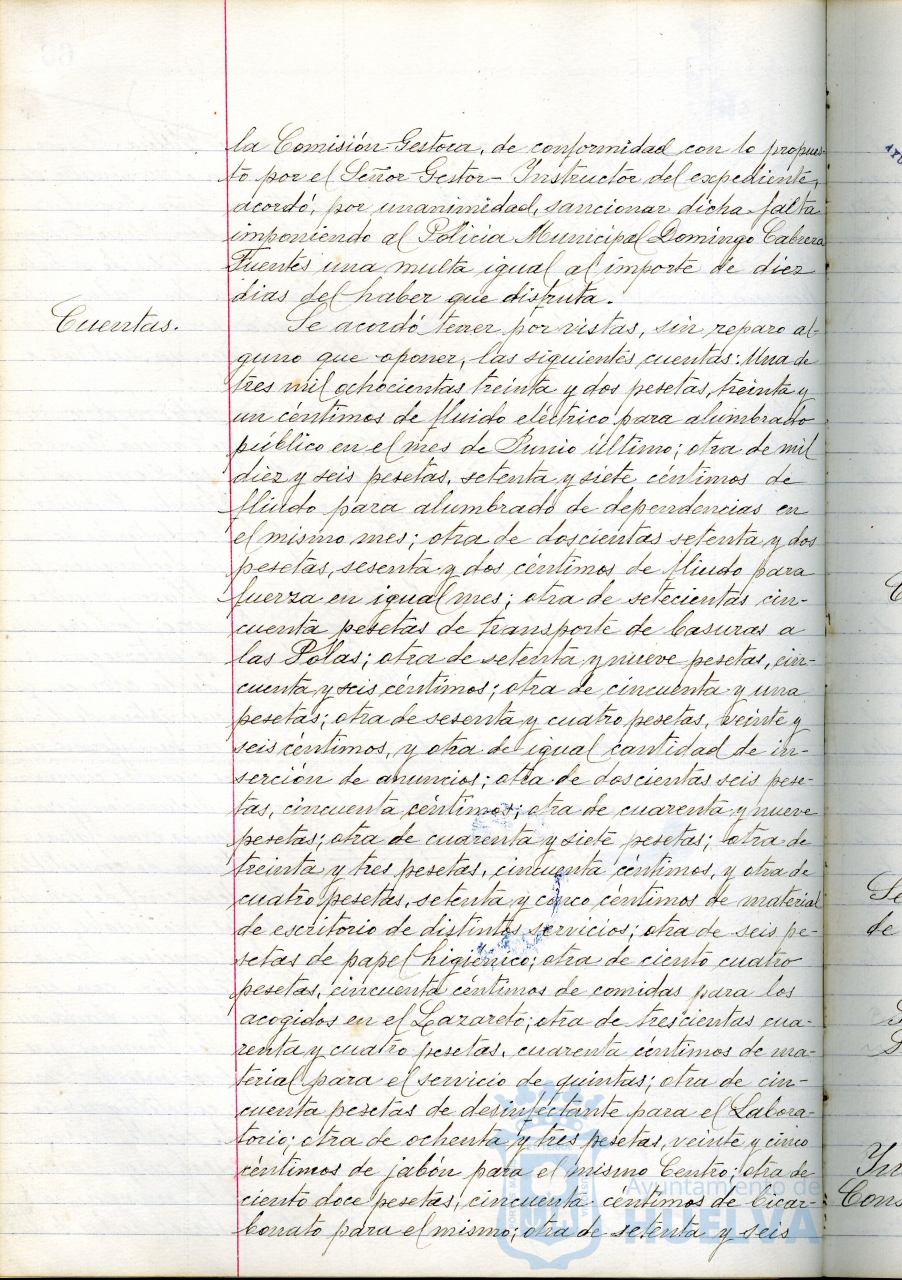 la Comisión-Gestora, de conformidad con lo propues-
to por el Señor Gestor-Instructor del expediente,
acordó, por unanimidad, sancionar dicha falta
imponiendo al Policia Municipal Domingo Cabrera
Fuentes una multa igual al importe de diez
dias del haber que disfruta.
Cuentas.
Se acordó tener por vistas, sin reparo al-
guno que oponer, las siguientes cuentas: Una de
tres mil ochocientas treinta y dos pesetas, treinta y
un céntimos de fluido eléctrico para alumbrado
público en el mes de Junio último; otra de mil
diez y seis pesetas, setenta y siete céntimos de
fluido para alumbrado de dependencias en
el mismo mes; otra de doscientas setenta y dos
pesetas, sesenta y dos céntimos de fluido para
fuerza en igual mes; otra de setecientas cin-
cuenta pesetas de transporte de basuras a
las Polas; otra de setenta y nueve pesetas, cin-
cuenta y seis céntimos; otra de cincuenta y una
pesetas; otra de sesenta y cuatro pesetas, veinte y
seis céntimos, y otra de igual cantidad de in-
serción de anuncios; otra de doscientas seis pese-
tas, cincuenta céntimos; otra de cuarenta y nueve
pesetas; otra de cuarenta y siete pesetas; otra de
treinta y tres pesetas, cincuenta céntimos, y otra de
cuatro pesetas, setenta y cinco céntimos de material
de escritorio de distintos servicios; otra de seis pe-
setas de papel higiénico; otra de ciento cuatro
pesetas, cincuenta céntimos de comidas para los
acogidos en el Lazareto; otra de trescientas cua-
renta y cuatro pesetas, cuarenta céntimos de ma-
terial para el servicio de quintas; otra de cin-
cuenta pesetas de desinfectante para el Labora-
torio; otra de ochenta y tres pesetas, veinte y cinco
céntimos de jabón para el mismo Centro; otra de
ciento doce pesetas, cincuenta céntimos de bicar-
bonato para el mismo; otra de setenta y seis
Ayuntamiento de
HUELVA
Se
de
Cons